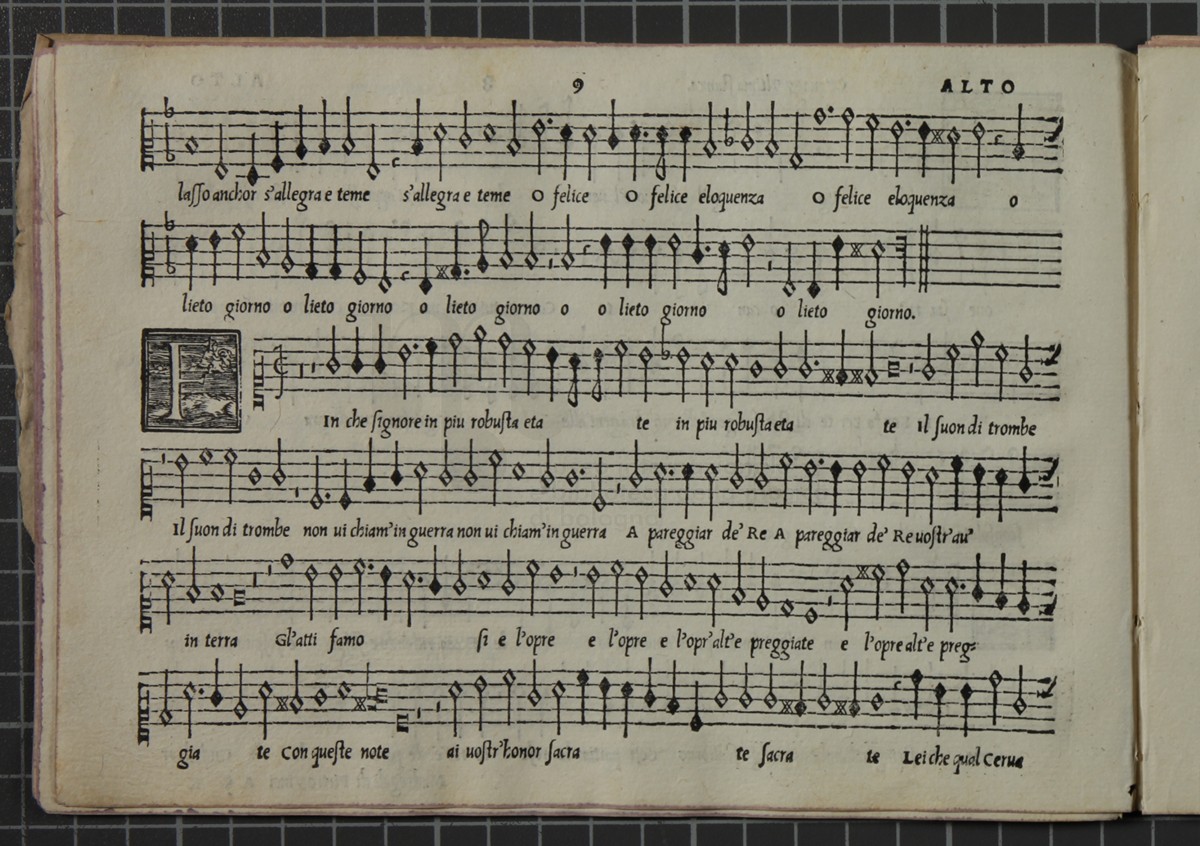 9 ALTO
lasso anchor s'allegra e teme s'allegra e teme O felice O felice eloquenza O felice eloquenza o
lieto giorno o lieto giorno o lieto giorno o o lieto giorno o lieto giorno.
F In che signore in piu robusta eta te in piu robusta eta te Il suon di trombe
Il suon di trombe non ui chiam'in guerra non ui chiam'in guerra A pareggiar de' Re A pareggiar de' Re uostr'au'
in terra Gl'atti famo si e l'opre e l'opre e l'opr'alt'e preggiate e l'opre alt'e preg=
gia te Con queste note ai uostr'honor sacra te sacra te Lei che qual Cerua